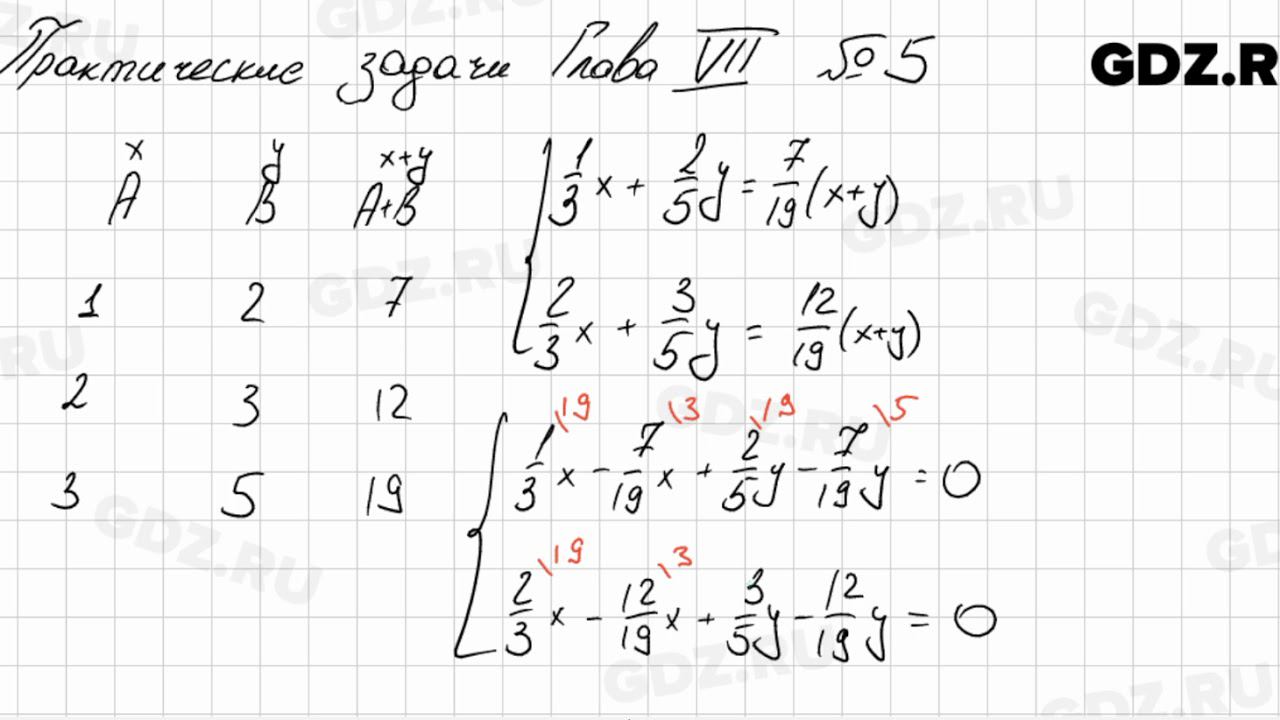 Практические задачи Глава VII №5
GDZ.R
x y x+y
A B A+B
1 2 7
2 3 12
3 5 19
1/3 x + 2/5 y = 7/19 (x+y)
2/3 x + 3/5 y = 12/19 (x+y)
\19 \3 \19 \5
1/3 x - 7/19 x + 2/5 y - 7/19 y = 0
\19 \3
2/3 x - 12/19 x + 3/5 y - 12/19 y = 0
GDZ.RU